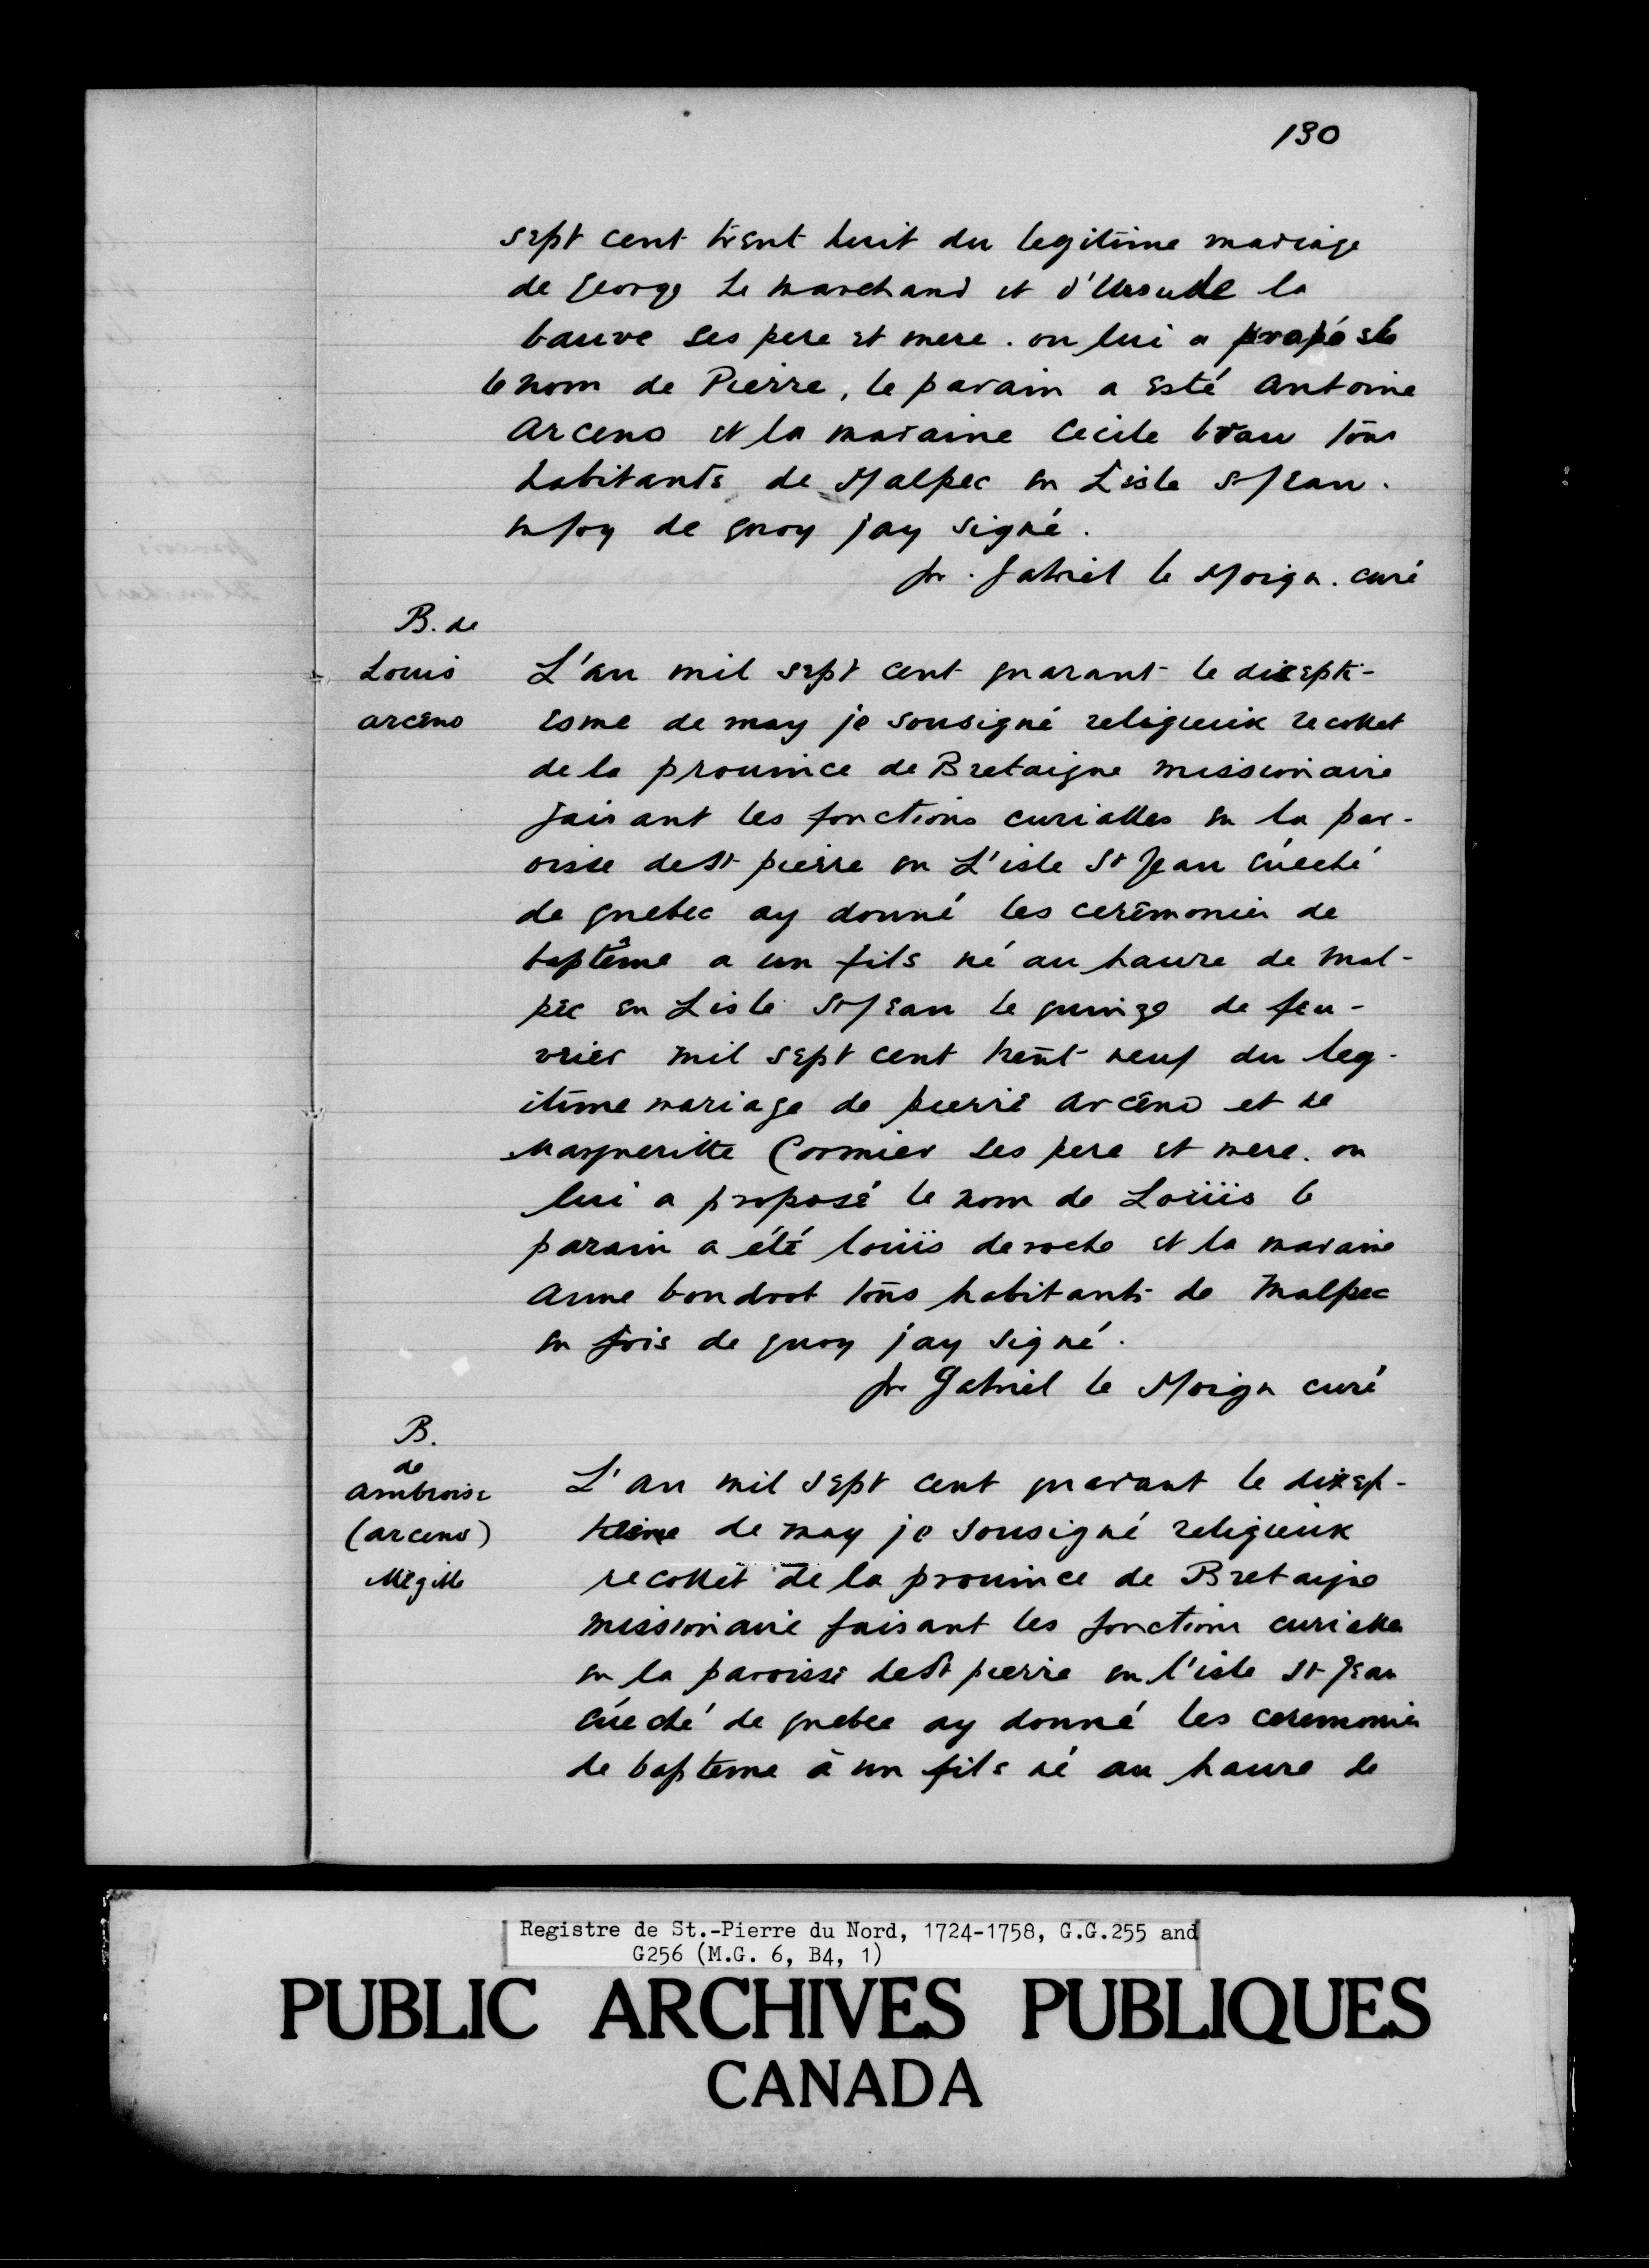 130
sept cent trent huit du legitime mariage
de George Le marchand et d'Ursule la
bauve ses pere et mere. on lui a proposé
le nom de Pierre, le parain a esté antoine
arceno et la maraine Cecile brau tous
habitants de Malpec en L'isle St Jean.
en foy de quoy jay signé.
fr. Gabriel le Moign. curé
B. de
Louis
arceno
L'an mil sept cent quarant le dixepti-
esme de may je sousigné religieuix recollet
de la prouince de Bretaigne missionaire
faisant les fonctions curialles en la par-
oisse de St pierre en L'isle St Jean éueché
de quebec ay donné les cerêmonies de
baptême a un fils né au haure de mal-
pec en Lisle St Jean le quinze de feu-
vrier mil sept cent trent neuf du leg-
itime mariage de pierre arceno et de
Margueritte Cormier ses pere et mere. on
lui a proposé le nom de Loüis le
parain a été loüis deroche et la maraine
anne boudrot tous habitants de Malpec
en fois de quoy jay signé.
fr Gabriel le Moign curé
B.
de
ambroise
(arceno)
L'an mil sept cent quarant le dixsep-
tiesme de may je sousigné religieuix
recollet de la prouince de Bretaigne
missionaire faisant les fonctions curialles
en la paroisse de St pierre en l'isle St Jean
éueché de quebec ay donné les ceremonies
de bapteme à un fils né au haure de
Registre de St.-Pierre du Nord, 1724-1758, G.G.255 and
G256 (M.G. 6, B4, 1)
PUBLIC ARCHIVES PUBLIQUES
CANADA